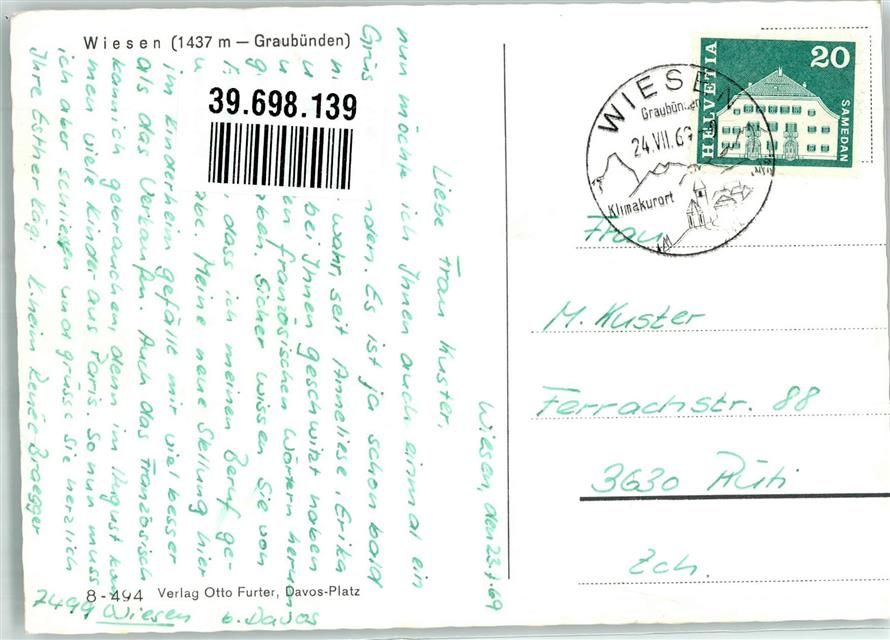 Wiesen (1437 m — Graubünden)
39.698.139
HELVETIA
20
SAMEDAN
WIESEN
Graubünden
24.VII.69
Klimakurort
Wiesen, den 23.7.69
Liebe Frau Kuster,
nun möchte ich Ihnen auch einmal ein
Grüs nden. Es ist ja schon bald
wahr, seit Anneliese, Erika
u bei Ihnen geschwitzt haben
u en französischen Wörtern herum
g ben. Sicher wissen Sie von
E , dass ich meinen Beruf ge-
u abe. Meine neue Stellung hier
im Kinderheim gefällt mir viel besser
als das Verkaufen. Auch das Französisch
kann ich gebrauchen, denn im August kom
men viele Kinder aus Paris. So nun muss
ich aber schliessen und grüsse Sie herzlich
Ihre Esther Kägi K.heim Renée Braegger
7499 Wiesen b. Davos
8-494 Verlag Otto Furter, Davos-Platz
Frau
M. Kuster
Ferrachstr. 88
3630 Rüti
Zch.